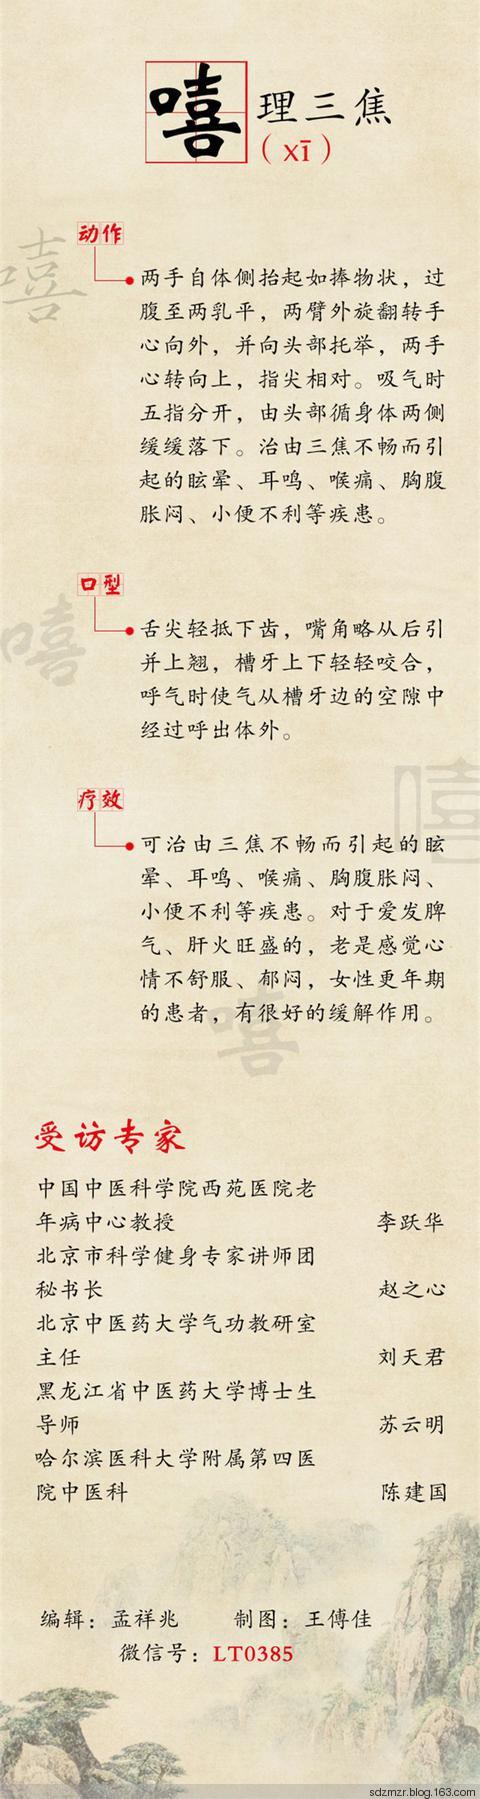 嘻 理三焦
（xī）
动作
两手自体侧抬起如捧物状，过
腹至两乳平，两臂外旋翻转手
心向外，并向头部托举，两手
心转向上，指尖相对。吸气时
五指分开，由头部循身体两侧
缓缓落下。治由三焦不畅而引
起的眩晕、耳鸣、喉痛、胸腹
胀闷、小便不利等疾患。
口型
舌尖轻抵下齿，嘴角略从后引
并上翘，槽牙上下轻轻咬合，
呼气时使气从槽牙边的空隙中
经过呼出体外。
疗效
可治由三焦不畅而引起的眩
晕、耳鸣、喉痛、胸腹胀闷、
小便不利等疾患。对于爱发脾
气、肝火旺盛的，老是感觉心
情不舒服、郁闷，女性更年期
的患者，有很好的缓解作用。
嘻
嘻
嘻
嘻
受访专家
中国中医科学院西苑医院老
年病中心教授 李跃华
北京市科学健身专家讲师团
秘书长 赵之心
北京中医药大学气功教研室
主任 刘天君
黑龙江省中医药大学博士生
导师 苏云明
哈尔滨医科大学附属第四医
院中医科 陈建国
编辑：孟祥兆 制图：王傅佳
微信号：LT0385
sdzmzr.blog.163.com